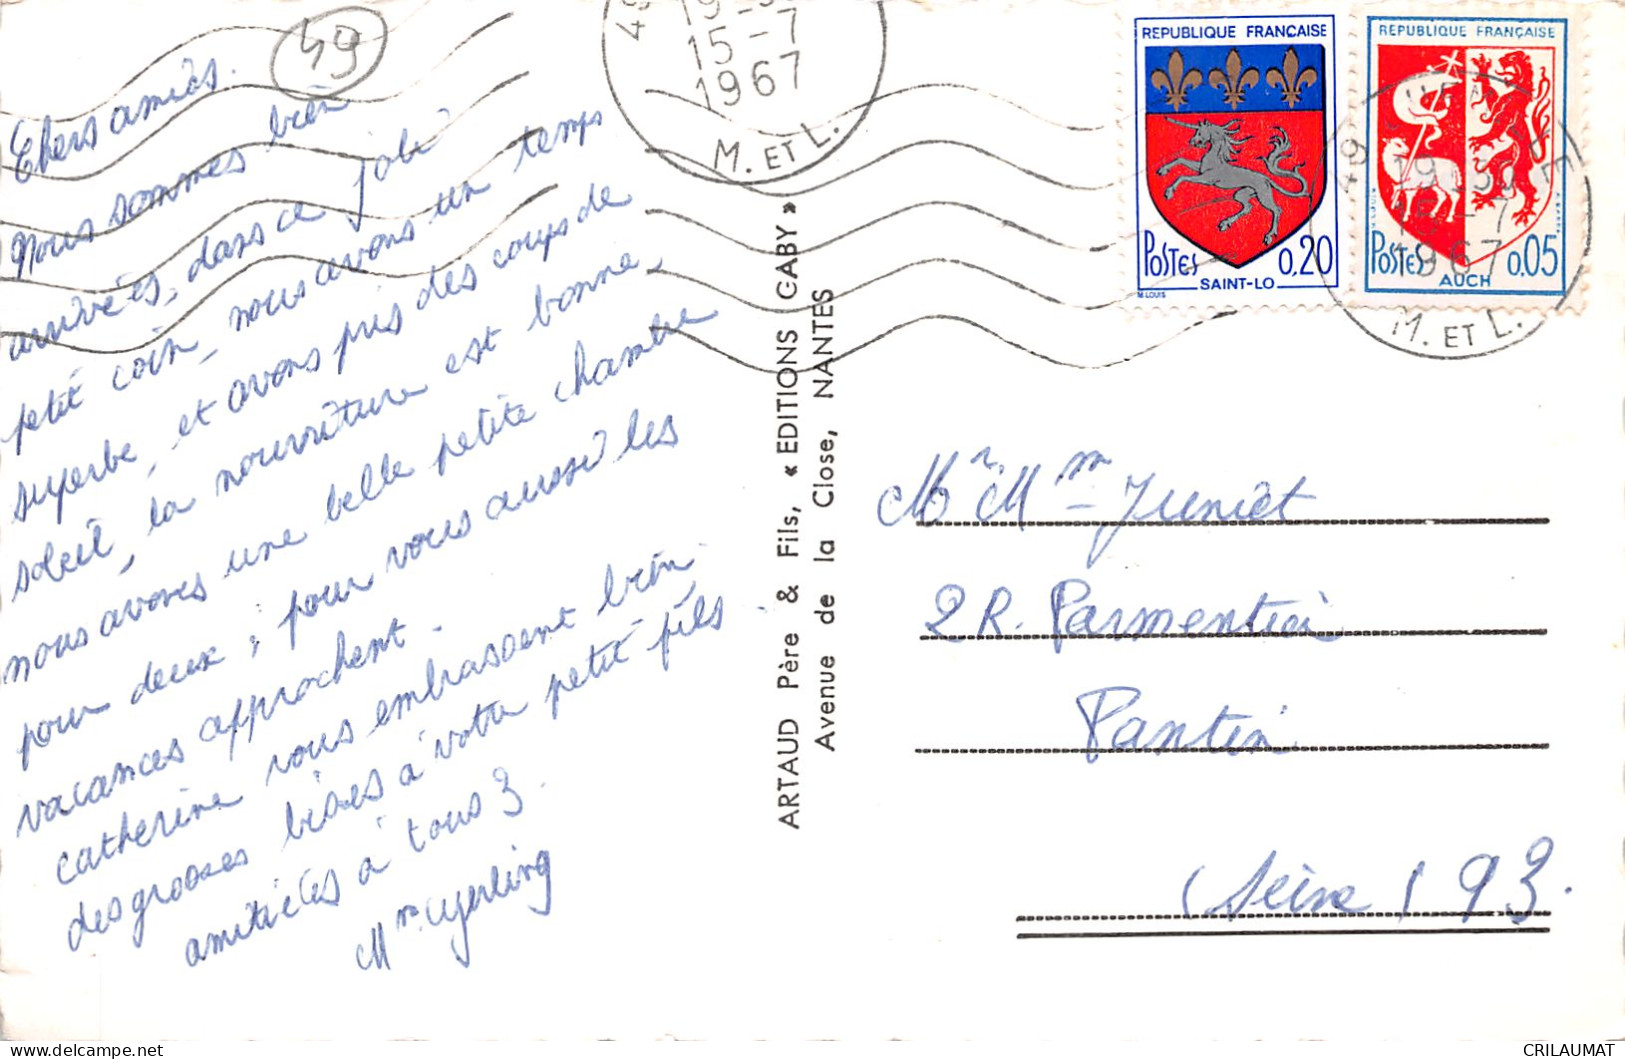 49
Chers amiès.
Nous sommes bien
arrivés, dans ce joli
petit coin, nous avons un temps
superbe, et avons pris des coups de
soleil, la nourriture est bonne,
nous avons une belle petite chambre
pour deux ; pour vous aussi les
vacances approchent.
Catherine vous embrassent bien
des grosses bises à votre petit fils
amitiés à tous 3.
19-30
15-7
1967
M. ET L.
REPUBLIQUE FRANÇAISE
POSTES 0,20
SAINT-LO
M.LOUIS
REPUBLIQUE FRANÇAISE
POSTES 0,05
AUCH
49
15-7
1967
M. ET L.
ARTAUD Père & Fils, « EDITIONS GABY »
Avenue de la Close, NANTES
Mr Mm Juniet
2 R. Parmentier
Pantin
(Seine) 93.
CRILAUMAT